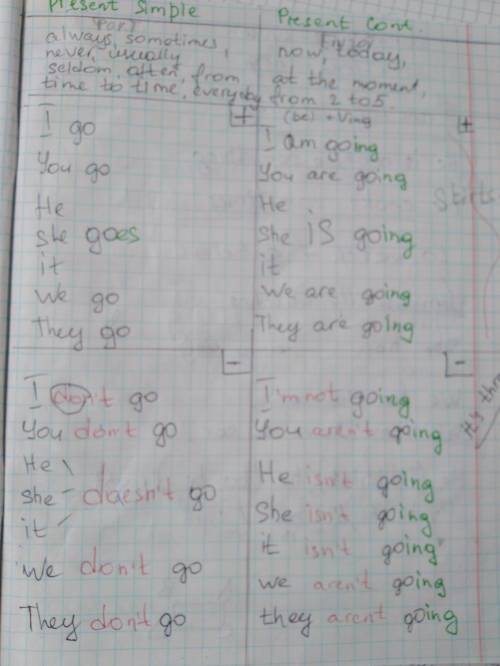 Present Simple
always, somotimes,
never, usually,
seldom, often, from
time to time, everyday
+
I go
You go
He
she goes
it
we go
They go
-
I don't go
You don't go
He
she - doesn't go
it
we don't go
They don't go
Present Cont.
now, today,
at the moment,
from 2 to 5.
(be) + Ving
+
I am going
You are going
He
she is going
it
we are going
They are going
-
I'm not going
You aren't going
He isn't going
She isn't going
it isn't going
we aren't going
they aren't going